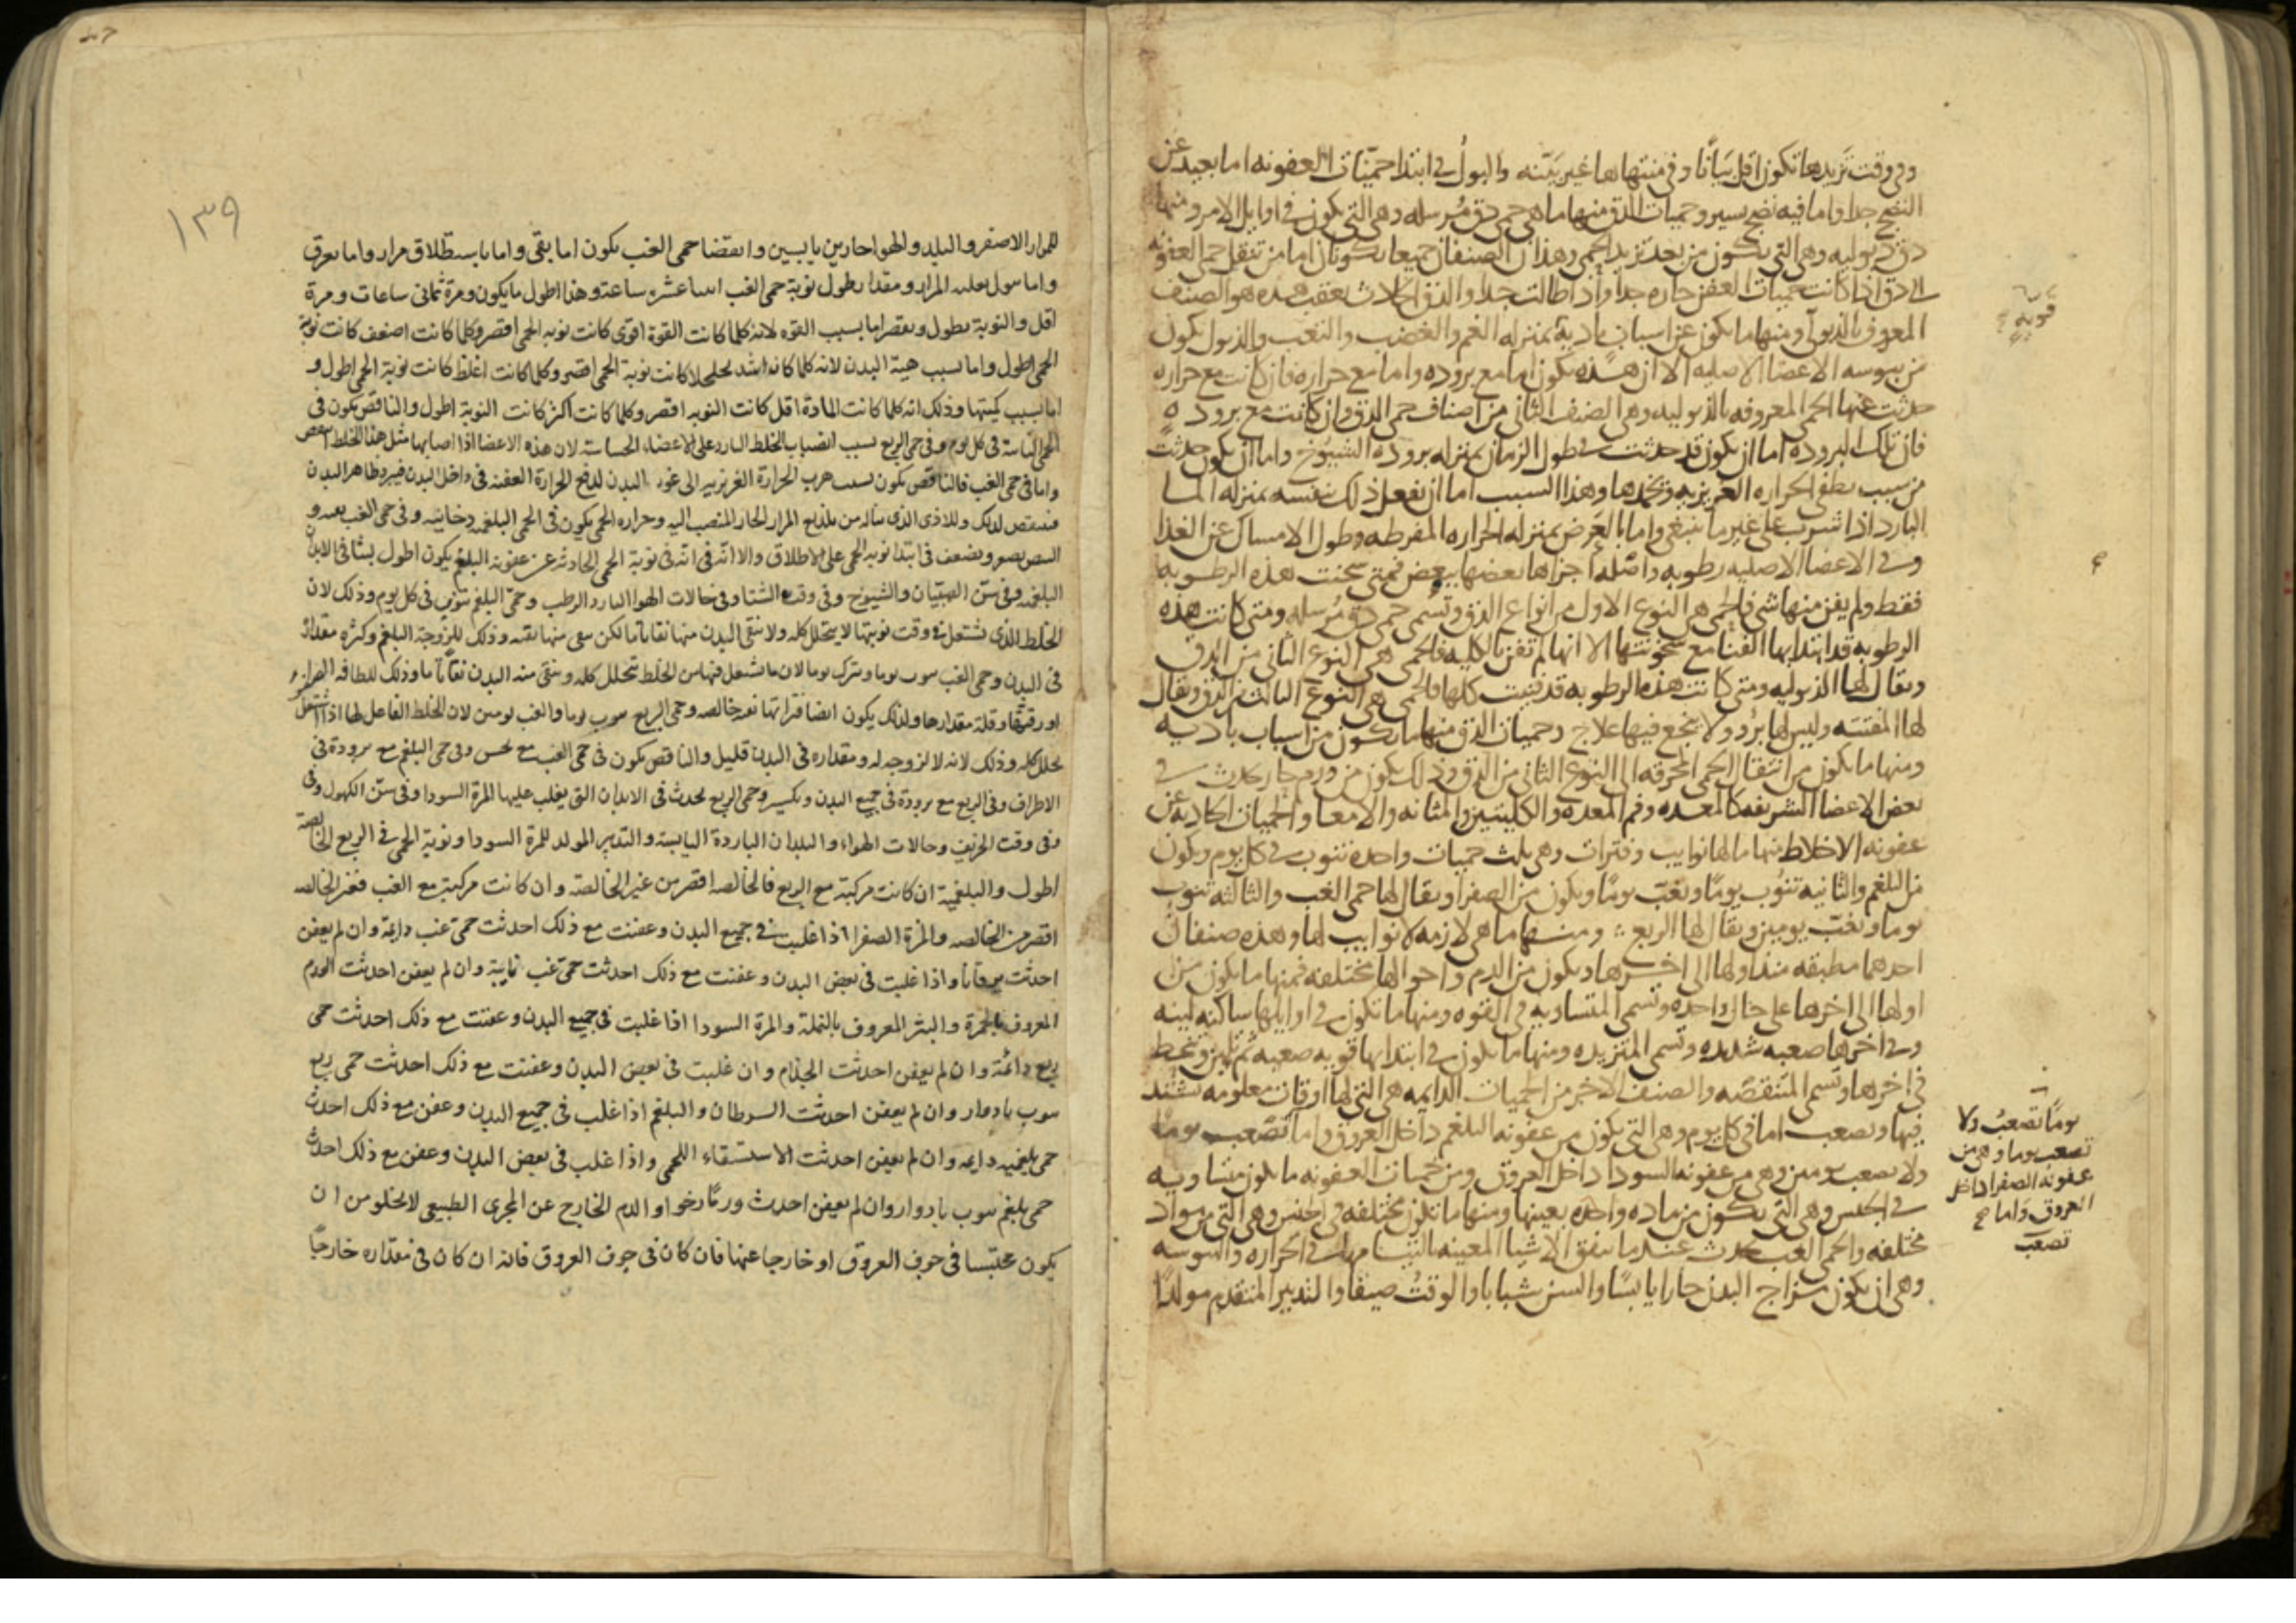 وفي وقت تزيدها تكون اقل بيانا وفي منتهاها غير بينه والبول في ابتدا حميات العفونه اما بعيد عن
النضج جدا واما فيه نضج يسير وحميات الدق منها ما هي حمى دق مرسله وهي التي تكون في اوايل الامر ومنها
دق ذبوليه وهي التي تكون من بعد تزيد الحمى وهذان الصنفان جميعا يكونان اما من تنقل حمى العفونه
الى دق اذا كانت حميات العفن حاره جدا واذا طالت جدا والدق الحادث بعقب هذه هو الصنف
المعروف بالذبولي ومنها ما يكون عن اسباب باديه بمنزله الغم والغضب والتعب والذبول يكون
من يبوسه الاعضا الاصليه الا ان هذه تكون اما مع بروده واما مع حراره فان كانت مع حراره
حدثت عنها الحمى المعروفه بالذبوليه وهي الصنف الثاني من اصناف حمى الدق وان كانت مع بروده
فان تلك البروده اما ان تكون قد حدثت في طول الزمان بمنزله بروده الشيوخ واما ان تكون حدثت
من سبب يطفي الحراره الغريزيه ويخمدها وهذا السبب اما ان يفعل ذلك بنفسه بمنزله الما
البارد اذا شرب على غير ما ينبغي واما بالعرض بمنزله الحراره المفرطه وطول الامساك عن الغذا
وفي الاعضا الاصليه رطوبه واصله اجزاها بعضها ببعض فمتى سخنت هذه الرطوبه
فقط ولم يفن منها شي فالحمى هي النوع الاول من انواع الدق وتسمى حمى دق مرسله ومتى كانت هذه
الرطوبه قد ابتدا بها الفنا مع سخونتها الا انها لم تفن بالكليه فالحمى هي النوع الثاني من الدق
ويقال لها الذبوليه ومتى كانت هذه الرطوبه قد فنيت كلها فالحمى هي النوع الثالث من الدق ويقال
لها المفتته وليس لها برء ولا ينجع فيها علاج وحميات الدق منها ما يكون من اسباب باديه
ومنها ما يكون من انتقال الحمى المحرقه الى النوع الثاني من الدق وذلك يكون من ورم حار يحدث في
بعض الاعضا الشريفه كالمعده وفم المعده والكليتين والمثانه والامعا والحميات الحادثه عن
عفونه الاخلاط منها ما لها نوايب وفترات وهي ثلث حميات واحده تنوب في كل يوم وتكون
من البلغم والثانيه تنوب يوما وتغب يوما وتكون من الصفرا ويقال لها حمى الغب والثالثه تنوب
يوما وتغب يومين ويقال لها الربع ومنها ما هي لازمه لا نوايب لها وهذه صنفان
احدهما مطبقه منذ اولها الى اخرها وتكون من الدم واحوالها مختلفه فمنها ما يكون من
اولها الى اخرها على حال واحده وتسمى المتساويه في القوه ومنها ما تكون في اوايلها ساكنه لينه
وفي اخرها صعبه شديده وتسمى المتزيده ومنها ما يكون في ابتدايها قويه صعبه ثم تلين وتنحط
في اخرها وتسمى المتنقصه والصنف الاخر من الحميات الدايمه هي التي لها اوقات معلومه تشتد
فيها وتصعب اما في كل يوم وهي التي تكون من عفونه البلغم داخل العروق واما تصعب يوما
ولا تصعب يومين وهي من عفونه السودا داخل العروق ومن حميات العفونه ما يكون متساويه
في الجنس وهي التي تكون من ماده واحده بعينها ومنها ما تكون مختلفه في الجنس وهي التي من مواد
مختلفه والحمى الغب تحدث عند ما تتفق الاشيا المعينه المتشابهه في الحراره واليبوسه
وهي ان يكون مزاج البدن حارا يابسا والسن شبابا والوقت صيفا والتدبير المتقدم مولدا
قويه
يوما تصعب ولا
تصعب يوما وهي من
عفونه الصفرا داخل
العروق واما
تصعب
١٣٩
للمرار الاصفر والبلد والهوا حارين يابسين وانقضا حمى الغب يكون اما بقي واما باستطلاق مرار واما بعرق
واما ببول يغلب المرار ومقدار طول نوبة حمى الغب اثنا عشره ساعة وهذا اطول ما يكون ومرة ثماني ساعات ومرة
اقل والنوبة تطول وتقصر اما بسبب القوه لانه كلما كانت القوة اقوى كانت نوبه الحمى اقصر وكلما كانت اضعف كانت نوبة
الحمى اطول واما بسبب هيئة البدن لانه كلما كان اشد تخلخلا كانت نوبة الحمى اقصر وكلما كانت اغلظ كانت نوبة الحمى اطول و
اما بسبب كميتها وذلك انه كلما كانت المادة اقل كانت النوبه اقصر وكلما كانت اكثر كانت النوبة اطول والنافض يكون في
الحمى النائبة في كل يوم وفي حمى الربع بسبب انصباب الخلط البارد على الاعضاء الحساسة لان هذه الاعضا اذا اصابها مثل هذا الخلط انتفض
واما في حمى الغب فالنافض يكون بسبب هرب الحرارة الغريزيه الى غور البدن لدفع الحرارة العفنه في داخل البدن فيبرد ظاهر البدن
فينتفض لذلك وللاذى الذي يناله من تلذيع المرار الحار المنصب اليه وحراره الحمى يكون في الحمى البلغميه دخانيه وفي حمى الغب
النبض يصغر ويضعف في ابتدا نوبه الحمى على الاطلاق والا انه في نوبة الحمى الحادثه عن عفونة البلغم يكون اطول لبثا في الابدان
البلغميه وفي سن الصبيان والشيوخ وفي وقت الشتا وفي حالات الهوا البارد الرطب وحمى البلغم تنوب في كل يوم وذلك لان
الخلط الذي تشتعل في وقت نوبتها لا يتحلل كله ولا ينقى البدن منها نقاء تاما لكن يبقى منها بقيه وذلك للزوجة البلغم وكثره مقداره
في البدن وحمى الغب تنوب يوما وتترك يوما لان ما تشتعل فيها من الخلط يتحلل كله وينقى منه البدن نقاء تاما وذلك للطافه المرار و
او رقتها وقلة مقدارها ولذلك يكون ايضا فتراتها نقيه خالصه وحمى الربع تنوب يوما وتغب يومين لان الخلط الفاعل لها اذا اشتعل
تحلل كله وذلك لانه لا لزوجه له ومقداره في البدن قليل والنافض يكون في حمى الغب مع نخس وفي حمى البلغم مع برودة في
الاطراف وفي الربع مع برودة في جميع البدن وتكسير وحمى الربع تحدث في الابدان التي يغلب عليها المرة السودا وفي سن الكهول وفي
وفي وقت الخريف وحالات الهواء والبلدان الباردة اليابسة والتدبير المولد للمرة السودا ونوبة الحمى في الربع الخالصة
اطول والبلغمية ان كانت مركبة مع الربع فالخالصه اقصر من غير الخالصة وان كانت مركبة مع الغب فغير الخالصه
اقصر من الخالصه والمرة الصفرا اذا غلبت في جميع البدن وعفنت مع ذلك احدثت حمى غب دائمة وان لم يعفن
احدثت يرقانا واذا غلبت في بعض البدن وعفنت مع ذلك احدثت حمى غب نائبة وان لم يعفن احدثت الورم
المعروف بالحمرة والبثر المعروف بالنملة والمرة السودا اذا غلبت في جميع البدن وعفنت مع ذلك احدثت حمى
ربع دائمة وان لم يعفن احدثت الجذام وان غلبت في بعض البدن وعفنت مع ذلك احدثت حمى ربع
تنوب بادوار وان لم يعفن احدثت السرطان والبلغم اذا غلب في جميع البدن وعفن مع ذلك احدث
حمى بلغميه دايمه وان لم يعفن احدثت الاستسقاء اللحمي واذا غلب في بعض البدن وعفن مع ذلك احدث
حمى بلغم تنوب بادوار وان لم يعفن احدث ورما رخوا والدم الخارج عن المجرى الطبيعي لا يخلو من ان
يكون محتبسا في جوف العروق او خارجا عنها فان كان في جوف العروق فانه ان كان في مقداره خارجا